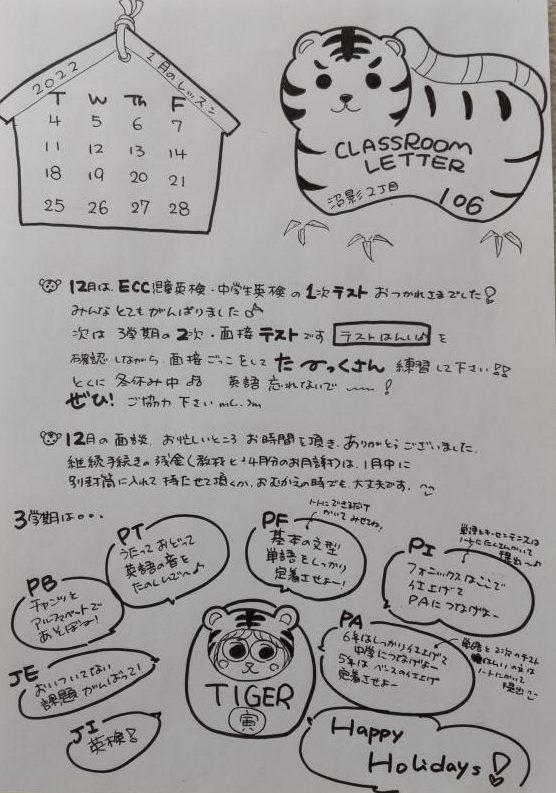 2022
1月のレッスン
T W Th F
4 5 6 7
11 12 13 14
18 19 20 21
25 26 27 28
CLASSROOM
LETTER
沼影2丁目
106
12月は、ECC児童英検・中学生英検の1次テストおつかれさまでした!
みんなとてもがんばりました♪
次は3学期の2次・面接テストです テストはんい♪を
確認しながら、面接ごっこをしてた〜っくさん練習して下さい!!
とくに冬休み中♪♪ 英語忘れないで〜〜!
ぜひ! ご協力下さい m(_ _)m
12月の面談、お忙しいところお時間を頂き、ありがとうございました。
継続手続きの残金(教材と4月分のお月謝)は、1月中に
別封筒に入れて持たせて頂くか、おむかえの時でも、大丈夫です。
3学期は…
PT
うたっておどって
英語の音を
たのしんで〜♪
PB
チャンツと
アルファベットで
あそぼう!
JE
おいついてない
課題がんばって!
JI
英検!
PF
基本の文型
単語をしっかり
定着させよー!
ノートにできるだけ
かいてみせてね!
PI
フォニックスはここで
仕上げて
PAにつなげよー
単語とキーセンテンスは
ノートにたくさんかいて
提出〜♪
PA
6年はしっかり仕上げて
中学につなげよー
5年はベースの仕上げ
定着させよー
単語と2次のテスト
はんいの文は
ノートにかいて
提出
TIGER
寅
Happy
Holidays!